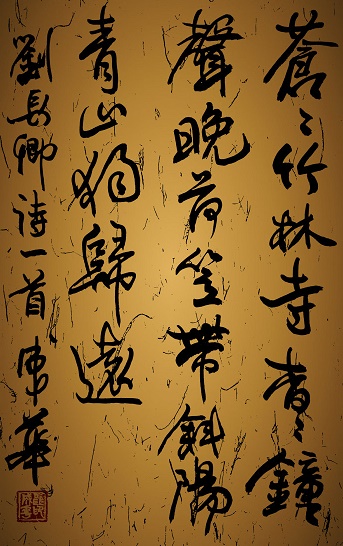 蒼〻竹林寺杳〻鐘
聲晚荷笠帶斜陽
青山獨歸遠
劉長卿詩一首